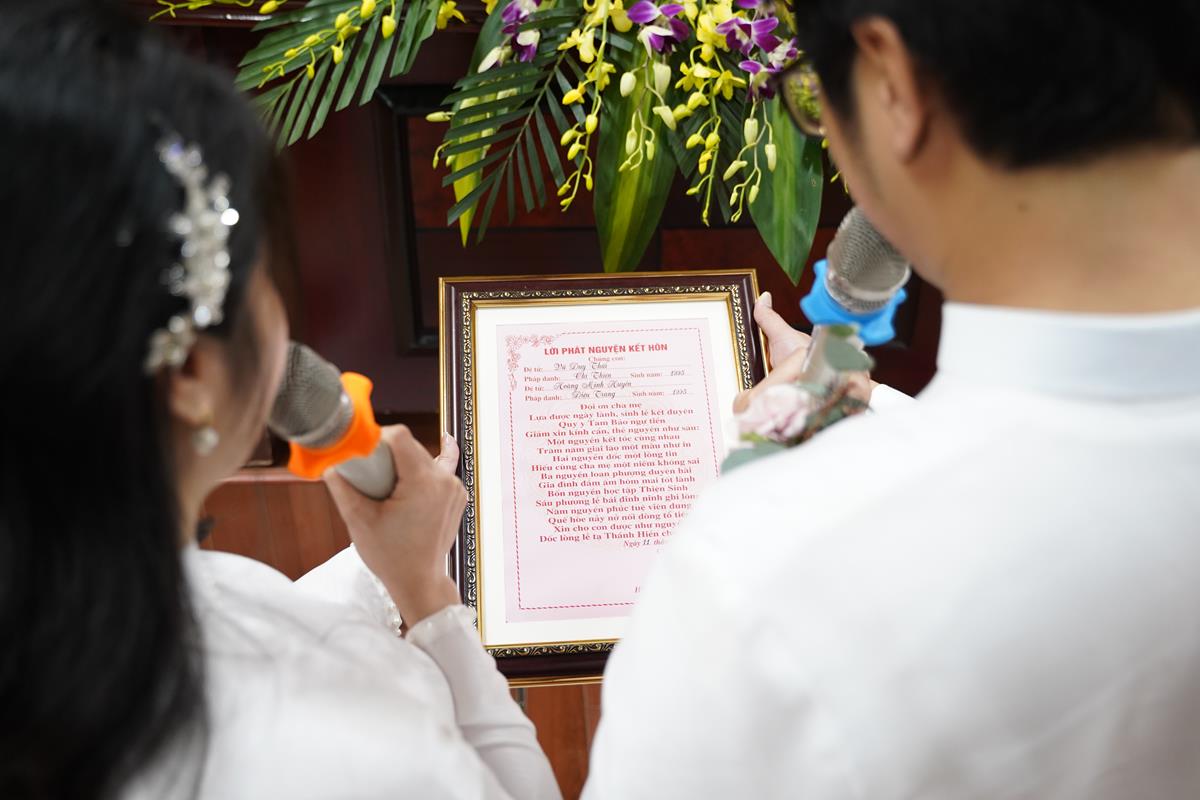 LỜI PHÁT NGUYỆN KẾT HÔN
Chúng con:
Đệ tử: Vũ Duy Thái
Pháp danh: Chí Thiện Sinh năm: 1995
Đệ tử: Hoàng Minh Huyền
Pháp danh: Diệu Trang Sinh năm: 1995
Đội ơn cha mẹ
Lựa được ngày lành, sính lễ kết duyên
Quy y Tam Bảo ngự tiền
Giảm xin kính cẩn, thề nguyện như sau:
Một nguyện kết tóc cùng nhau
Trăm năm giai lão một màu như in
Hai nguyện dốc một lòng tin
Hiếu cùng cha mẹ một niềm không sai
Ba nguyện loan phượng duyên hài
Gia đình đầm ấm hôm mai tốt lành
Bốn nguyện học tập Thiện Sinh
Sáu phương lễ bái đinh ninh ghi lòng
Năm nguyện phúc tuệ viên dung
Quế hòe nảy nở nối dòng tổ
Xin cho con được như
Dốc lòng lễ tạ Thánh Hiền
Ngày 11